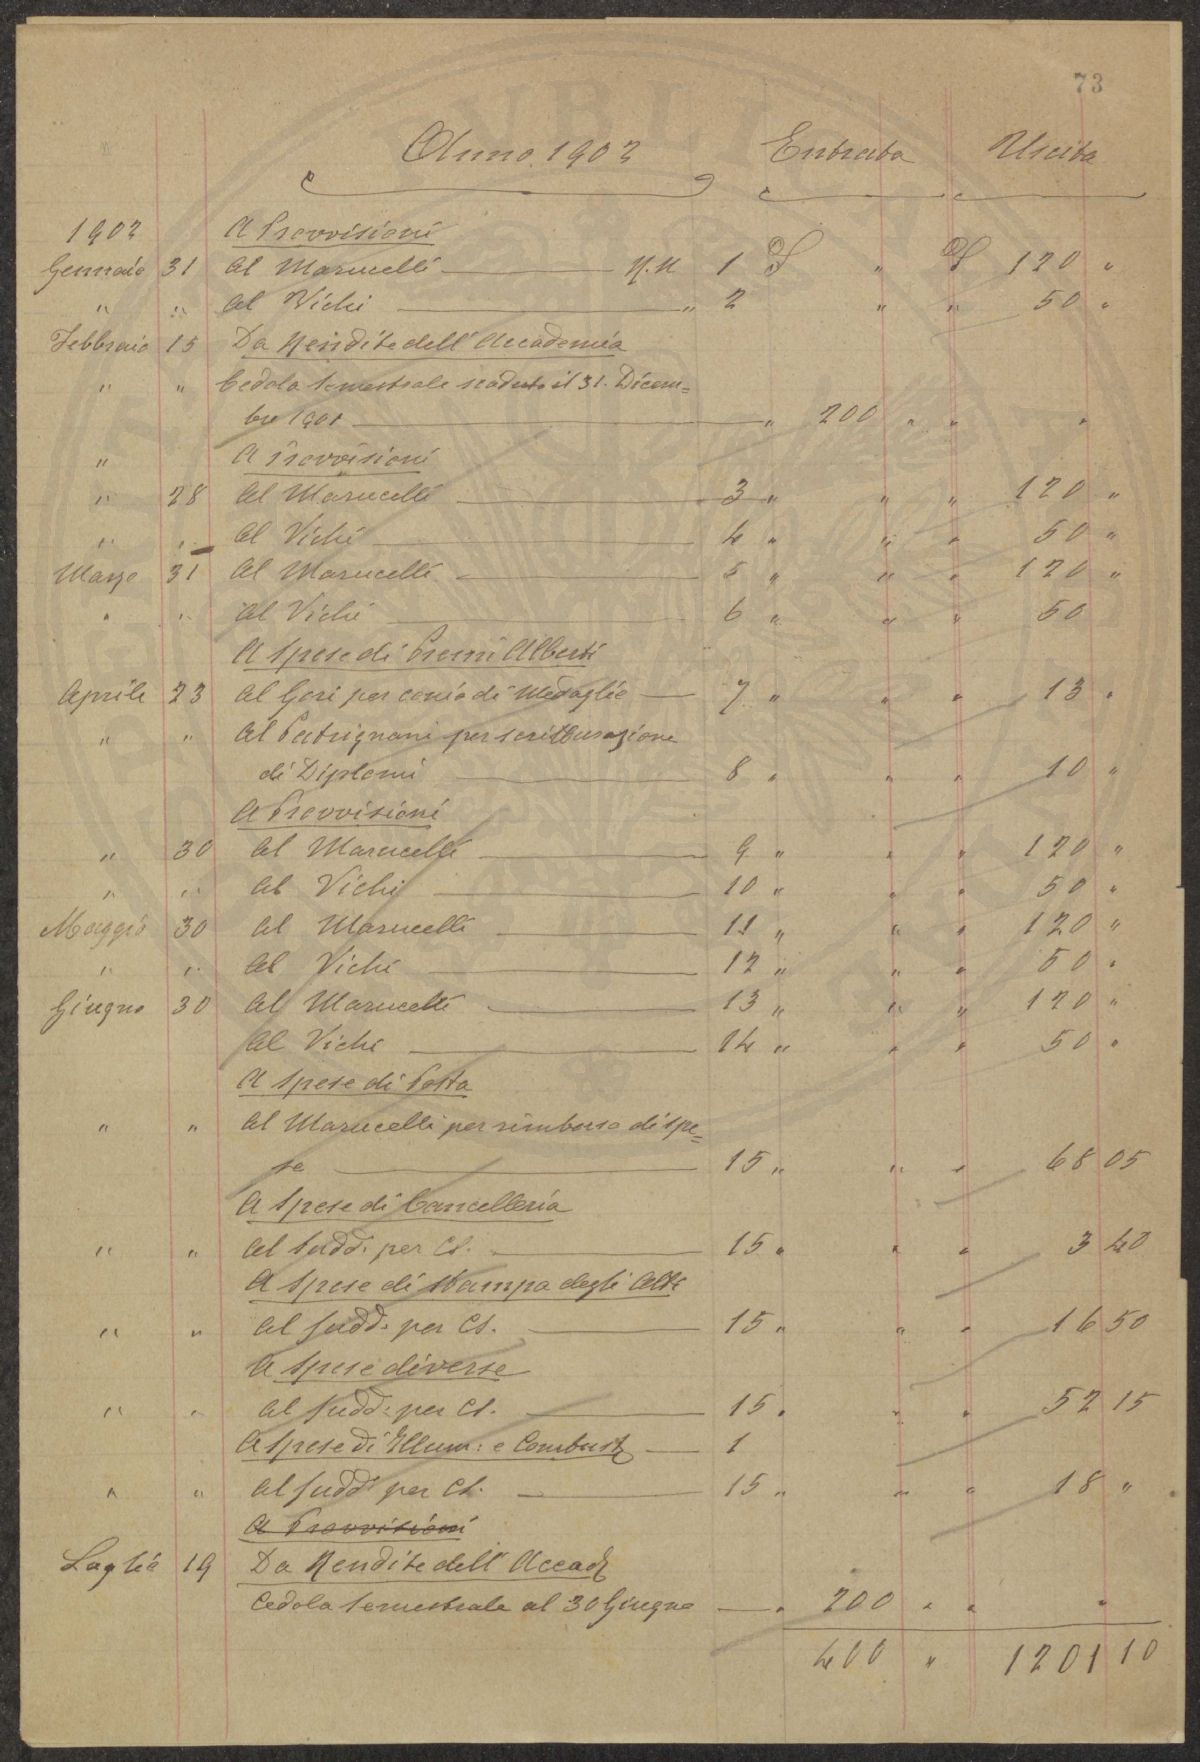 73
Anno 1902 Entrata Uscita
1902 A Provvisioni
Gennaio 31 Al Marucelli N.M 1 £ " £ 120 "
" " Al Vichi " 2 " " 50 "
Febbraio 15 Da Rendite dell' Accademia
" " Cedola semestrale scaduta il 31. Dicem=
bre 1901 " 200 " " "
" A Provvisioni
" 28 Al Marucelli 3 " " " 120 "
" " Al Vichi 4 " " " 50 "
Marzo 31 Al Marucelli 5 " " " 120 "
" " Al Vichi 6 " " " 50
A Spese di Premi Alberti
Aprile 23 Al Gori per conio di Medaglie 7 " " " 13 "
" " Al Patrignani per scritturazione
di Diplomi 8 " " " 10 "
A Provvisioni
" 30 Al Marucelli 9 " " " 120 "
" " Al Vichi 10 " " " 50 "
Maggio 30 Al Marucelli 11 " " " 120 "
" " Al Vichi 12 " " " 50 "
Giugno 30 Al Marucelli 13 " " " 120 "
Al Vichi 14 " " " 50 "
A Spese di Posta
" " Al Marucelli per rimborso di spe=
se 15 " " " 68 05
A Spese di Cancelleria
" " Al Sudd. per Cs. 15 " " " 3 40
A Spese di stampa degli Atti
" " Al sudd. per Cs. 15 " " " 16 50
A Spese diverse
" " Al sudd: per Cs. 15 " " " 52 15
A Spese di Illum: e Combust 1
" " Al sudd per Cs. 15 " " " 18 "
A Provvisioni
Luglio 19 Da Rendite dell' Accad
Cedola semestrale al 30 Giugno " 200 " " "
400 " 1201 10